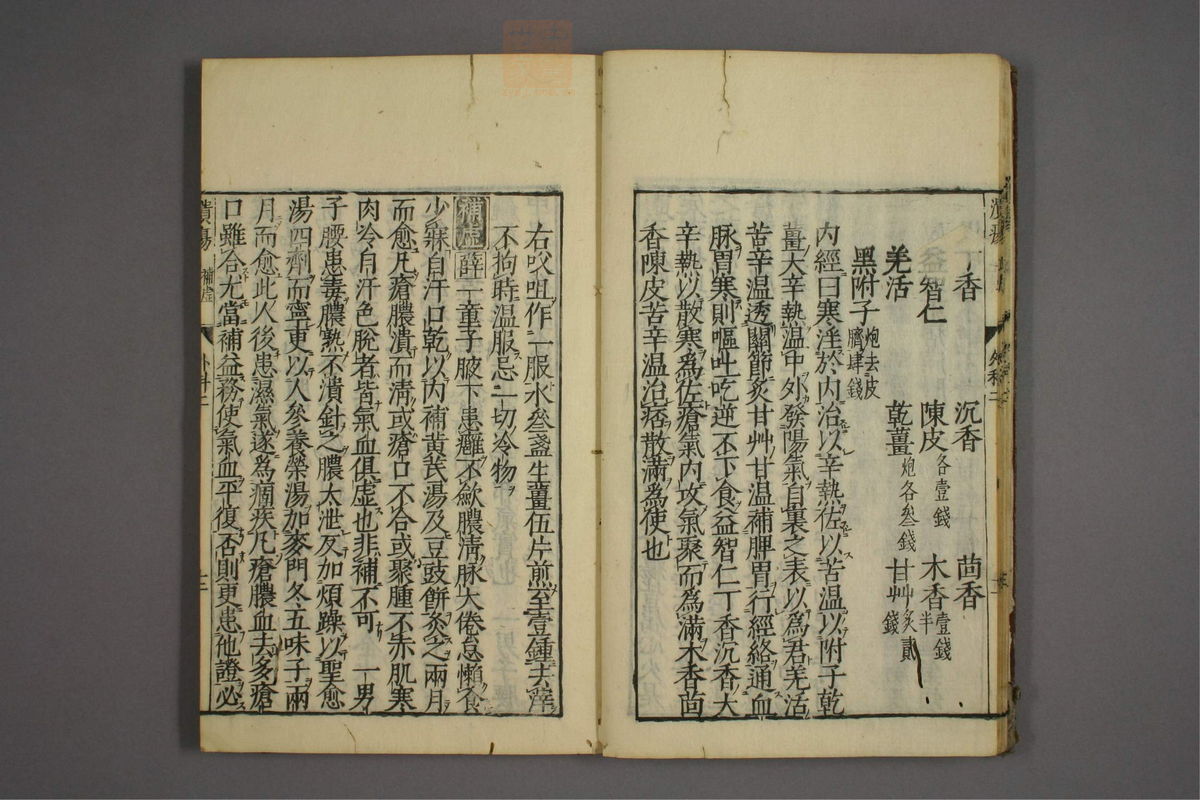 丁香 沉香 茴香
智仁 陳皮各壹錢 木香壹錢半
羌活 乾薑炮各叄錢 甘艸炙貳錢
黑附子炮去皮臍肆錢
内經曰寒淫於内治以辛熱佐以苦温以附子乾
薑大辛熱温中外發陽氣自裏之表以為君羌活
苦辛温透關節炙甘艸甘温補脾胃行經絡通血
脉胃寒則嘔吐吃逆不下食益智仁丁香沉香大
辛熱以散寒為佐瘡氣内攻氣聚而為滿木香茴
香陳皮苦辛温治痞散滿為使也
右㕮咀作一服水叄盞生薑伍片煎至壹鍾去滓
不拘時温服忌一切冷物
補虚 薛 一童子腋下患癰不歛膿清脉大倦怠懶食
少寐自汗口乾以内補黄芪湯及豆豉餅灸之兩月
而愈凡瘡膿潰而清或瘡口不合或聚腫不赤肌寒
肉冷自汗色脫者皆氣血俱虚也非補不可 一男
子腰患毒膿熟不潰針之膿大泄反加煩躁以聖愈
湯四劑而寧更以人參養榮湯加麥門冬五味子兩
月而愈此人後患濕氣遂為痼疾凡瘡膿血去多瘡
口雖合尤當補益務使氣血平復否則更患他證必
潰瘍 補虚 外科二